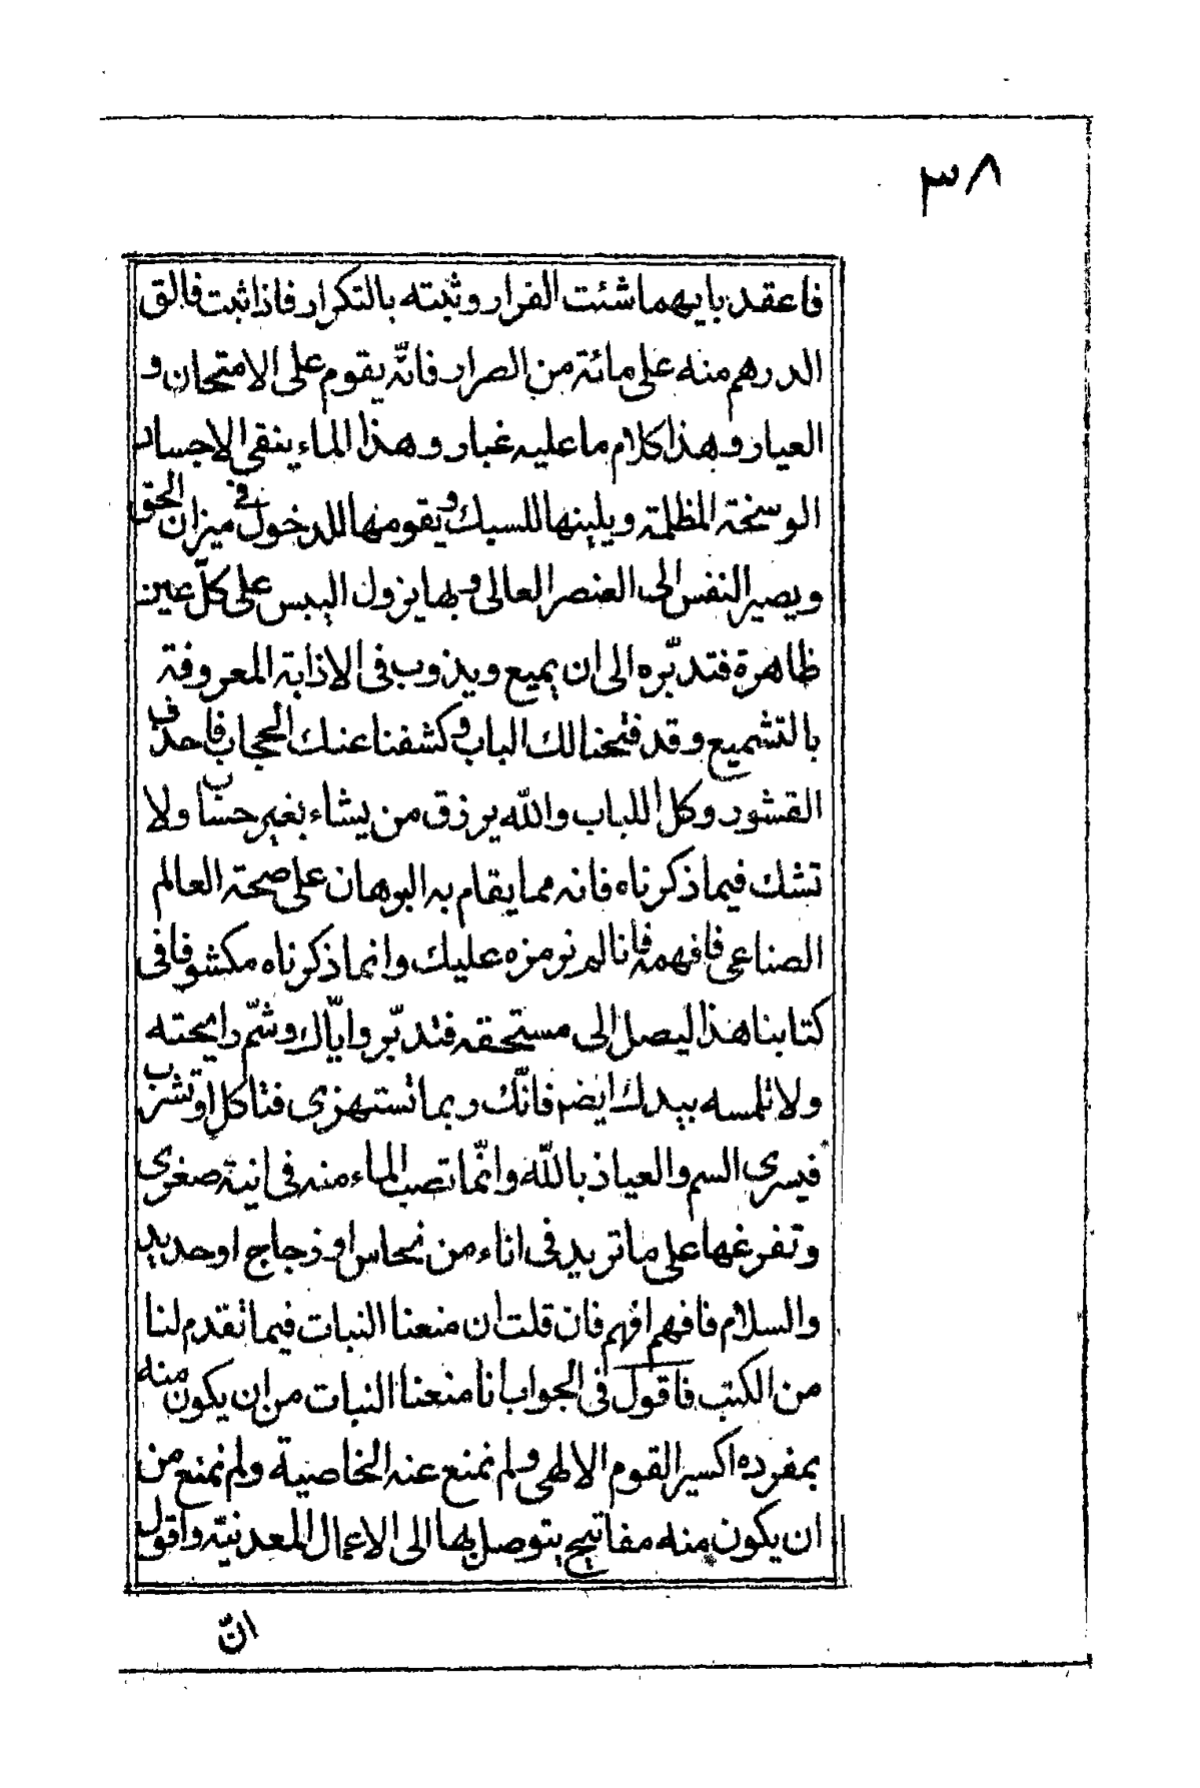 ٣٨
فاعقد بايهما شئت الفرار وثبته بالتكرار فاذا ثبت فالق
الدرهم منه على مائة من الصرار فانّه يقوم على الامتحان و
العيار وهذا كلام ما عليه غبار وهذا الماء ينقى الاجساد
الوسخة المظلمة ويلينها للسبك ويقومها للدخول فى ميزان الحق
ويصير النفس الى العنصر العالى وبها يزول اليبس على كلّ عين
ظاهرة فتدبّره الى ان يميع ويذوب فى الاذابة المعروفة
بالتشميع وقد فتحنا لك الباب وكشفنا عنك الحجاب فاحذف
القشور وكل اللباب والله يرزق من يشاء بغير حساب ولا
تشك فيما ذكرناه فانه مما يقام به البرهان على صحة العالم
الصناعى فافهمه فانا لم نرمزه عليك وانما ذكرناه مكشوفا فى
كتابنا هذا ليصل الى مستحقه فتدبّر واياّك وشمّ رايحته
ولا تلمسه بيدك ايضم فانّك ربما تستهزى فتاكل او تشرب
فيسرى السم والعياذ بالله وانّما تصب الماء منه فى انية صغرى
وتفرغها على ما تريد فى اناء من نحاس او زجاج او حديد
والسلام فافهم افهم فان قلت ان منعنا النبات فيما تقدم لنا
من الكتب فاقول فى الجواب انا منعنا النبات من ان يكون منه
بمفرده اكسير القوم الالهى ولم نمنع عنه الخاصية ولم نمنع من
ان يكون منه مفاتيح يتوصل بها الى الاعمال المعدنية واقول
انّ